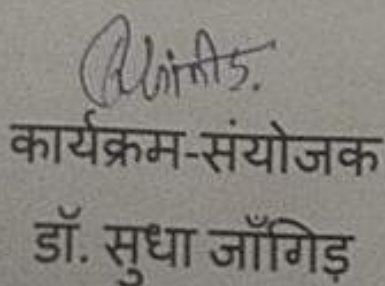 कार्यक्रम-संयोजक
डॉ. सुधा जाँगिड़